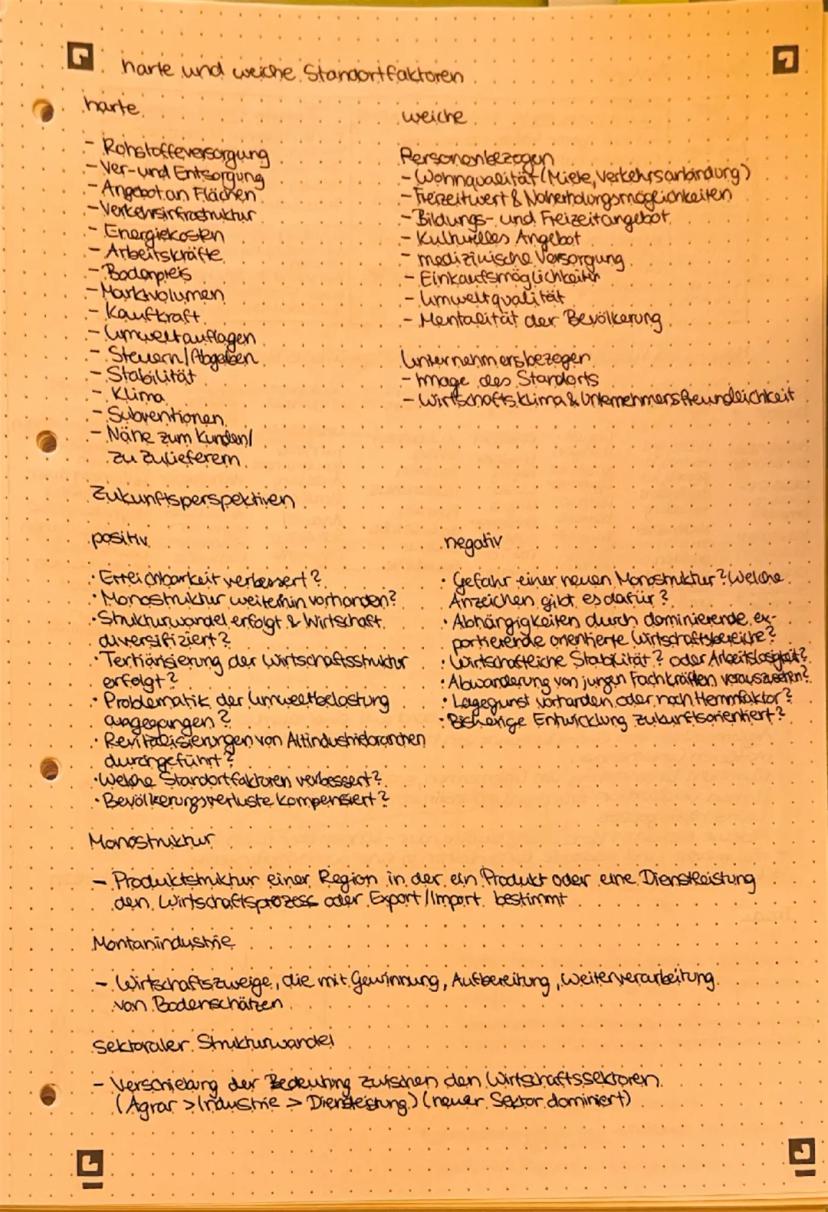 harte und weiche Standortfaktoren
harte
- Rohstoffeversorgung
- Ver- und Entsorgung
- Angebot an Flächen
- Verkehrsinfrastruktur
- Energiekosten
- Arbeitskräfte
- Bodenpreis
- Marktvolumen
- Kaufkraft
- Umweltauflagen
- Steuern/Abgaben
- Stabilität
- Klima
- Subventionen
- Nähe zum Kunden/
zu Zulieferern
weiche
Personenbezogen
- Wohnqualität (Miete, Verkehrsanbindung)
- Freizeitwert & Naherholungsmöglichkeiten
- Bildungs- und Freizeitangebot
- Kulturelles Angebot
- medizinische Versorgung
- Einkaufsmöglichkeiten
- Umweltqualität
- Mentalität der Bevölkerung
Unternehmensbezogen
- Image des Standorts
- Wirtschaftsklima & Unternehmensfreundleichkeit
Zukunftsperspektiven
positiv
· Erreichbarkeit verbessert?
· Monostruktur weiterhin vorhanden?
· Strukturwandel erfolgt & Wirtschaft
diversifiziert?
· Tertiärisierung der Wirtschaftsstruktur
erfolgt?
· Problematik der Umweltbelastung
angegangen?
· Revitalisierungen von Altindustriebranchen
durchgeführt?
· Welche Standortfaktoren verbessert?
· Bevölkerungsverluste kompensiert?
negativ
· Gefahr einer neuen Monostruktur? Welche
Anzeichen gibt es dafür?
· Abhängigkeiten durch dominierende, ex-
portierende orientierte Wirtschaftsbereiche?
· Wirtschaftleiche Stabilität? oder Arbeitslosigkeit?
· Abwanderung von jungen Fachkräften vorauszusehen?
· Lagegunst vorhanden oder noch Hemmfaktor?
· Bisherige Entwicklung zukunftsorientiert?
Monostruktur
- Produktstruktur einer Region in der ein Produkt oder eine Dienstleistung
den Wirtschaftsprozess oder Export/Import bestimmt
Montanindustrie
- Wirtschaftszweige, die mit Gewinnung, Aufbereitung, Weiterverarbeitung
von Bodenschätzen
sektoraler Strukturwandel
- Verschiebung der Bedeutung zwischen den Wirtschaftssektoren
(Agrar > Industrie > Dienstleistung) (neuer Sektor dominiert)